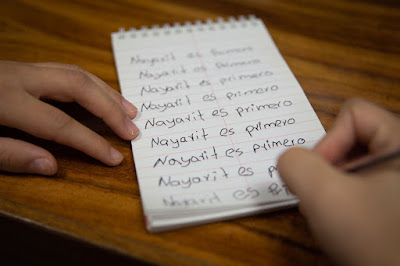 Nayarit es primero
Nayarit es primero
Nayarit es primero
Nayarit es primero
Nayarit es primero
Nayarit es primero
Nayarit es primero
Nayarit es pri
Nayarit es p